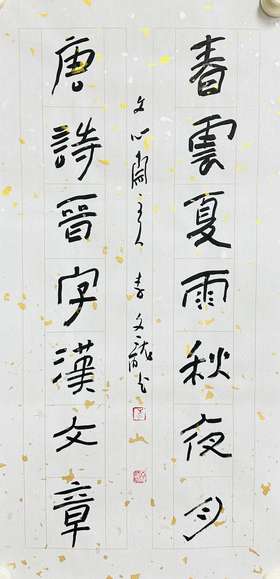 春雲夏雨秋夜月
唐詩晉字漢文章
文心閣主人 李文龍書